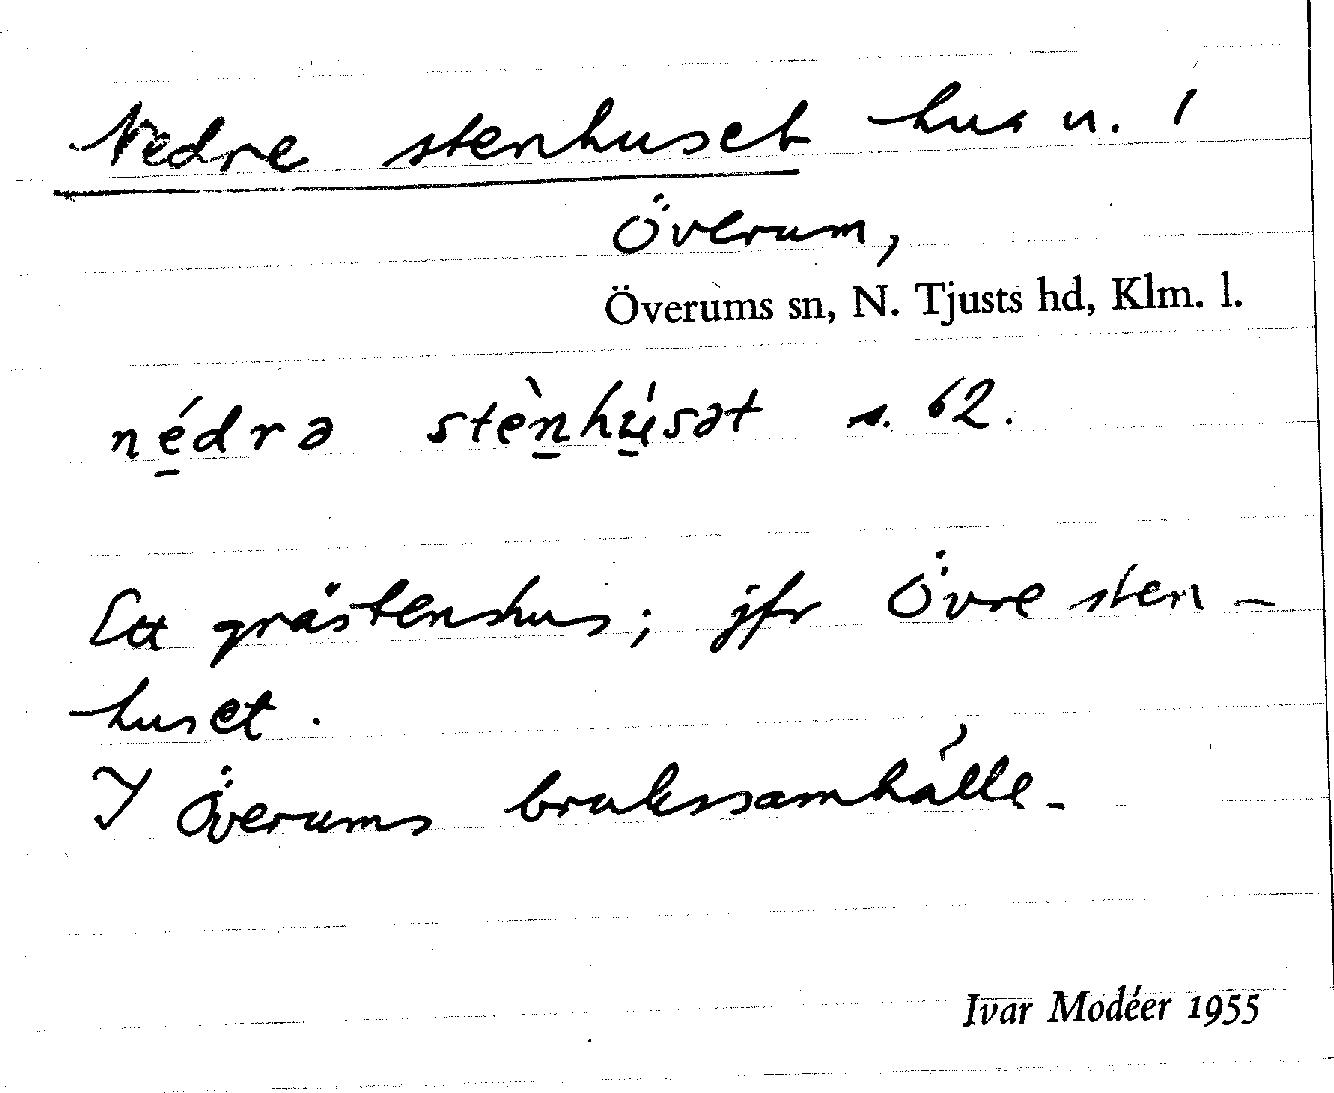 Nedre stenhuset hus n. 1
Överum,
Överums sn, N. Tjusts hd, Klm. l.
né̱drə stèṉhú̱sət s. 62.
Ett gråstenshus; jfr Övre sten-
huset.
I Överums brukssamhälle.
Ivar Modéer 1955